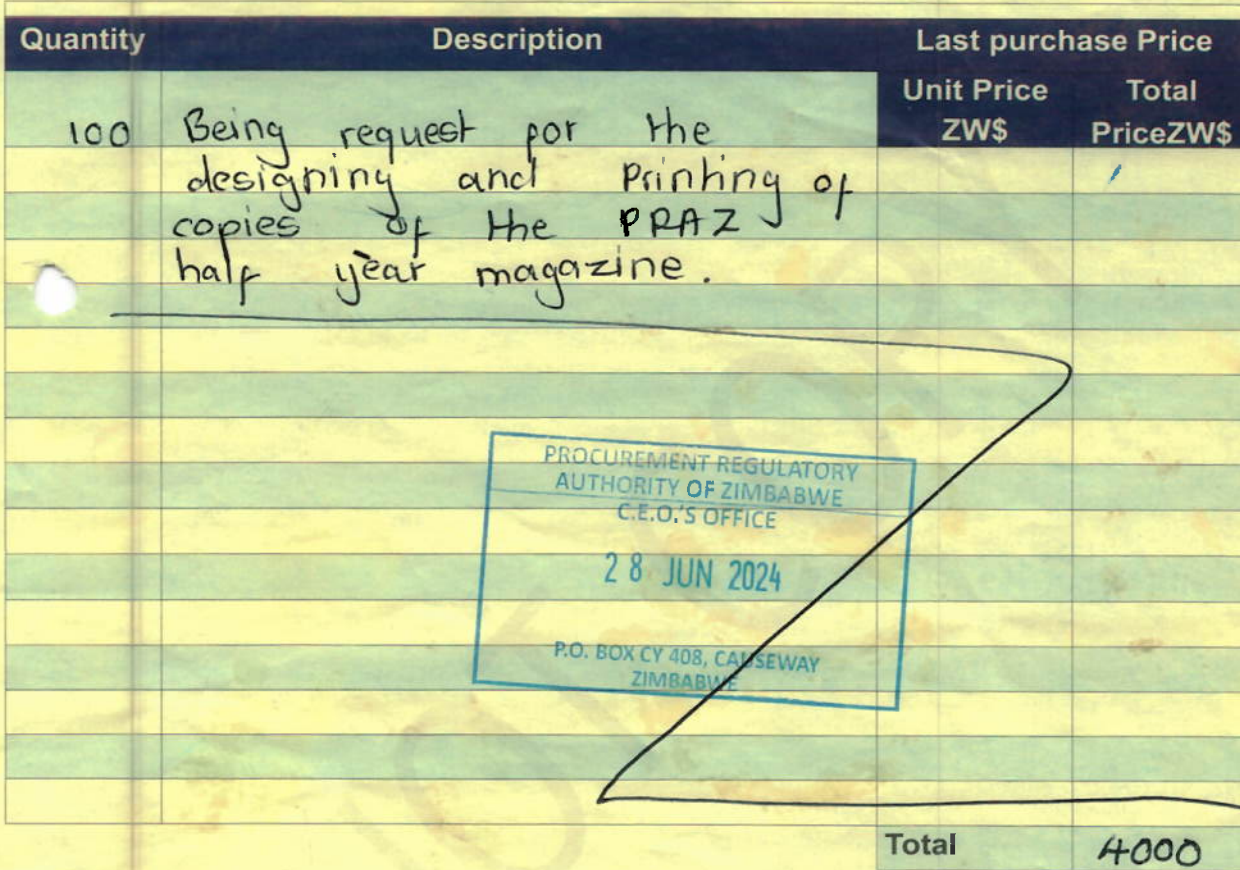 Quantity Description Last purchase Price
Unit Price Total
ZW$ PriceZW$
100 Being request for the
designing and Printing of
copies of the PRAZ
half year magazine.
PROCUREMENT REGULATORY
AUTHORITY OF ZIMBABWE
C.E.O.'S OFFICE
28 JUN 2024
P.O. BOX CY 408, CAUSEWAY
ZIMBABWE
Total 4000